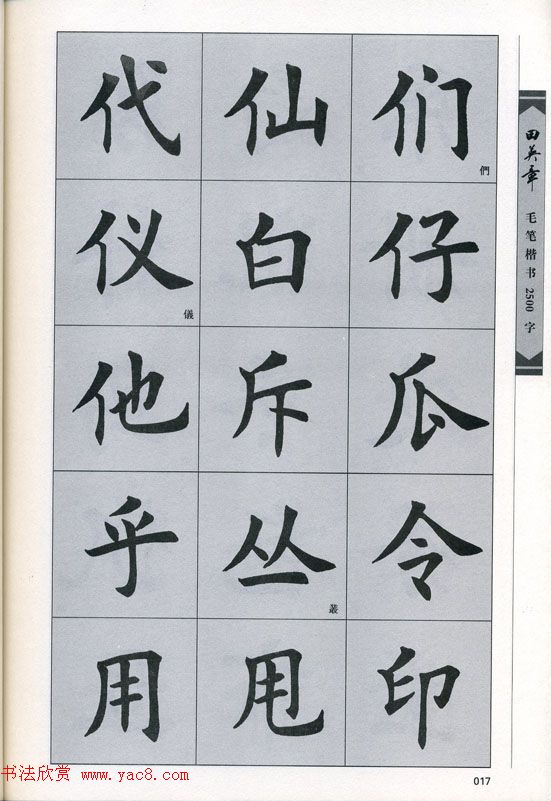 代 仙 们 們
仪 儀 白 仔
他 斥 瓜
乎 丛 叢 令
用 甩 印
田英章 毛笔楷书2500字
书法欣赏 www.yac8.com
017